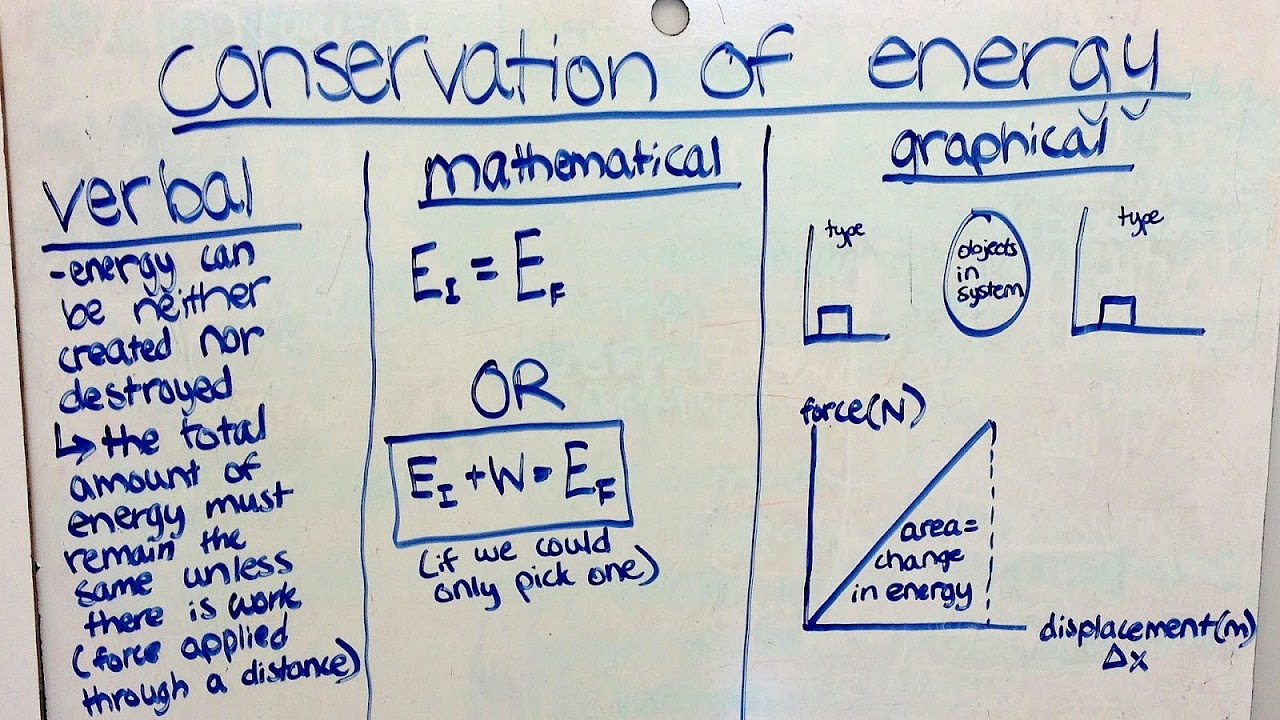 conservation of energy
verbal
-energy can
be neither
created nor
destroyed
↳ the total
amount of
energy must
remain the
same unless
there is work
(force applied
through a distance)
mathematical
E_I = E_F
OR
E_I + W = E_F
(if we could
only pick one)
graphical
type
objects
in
system
type
force(N)
area=
change
in energy
displacement(m)
Δx